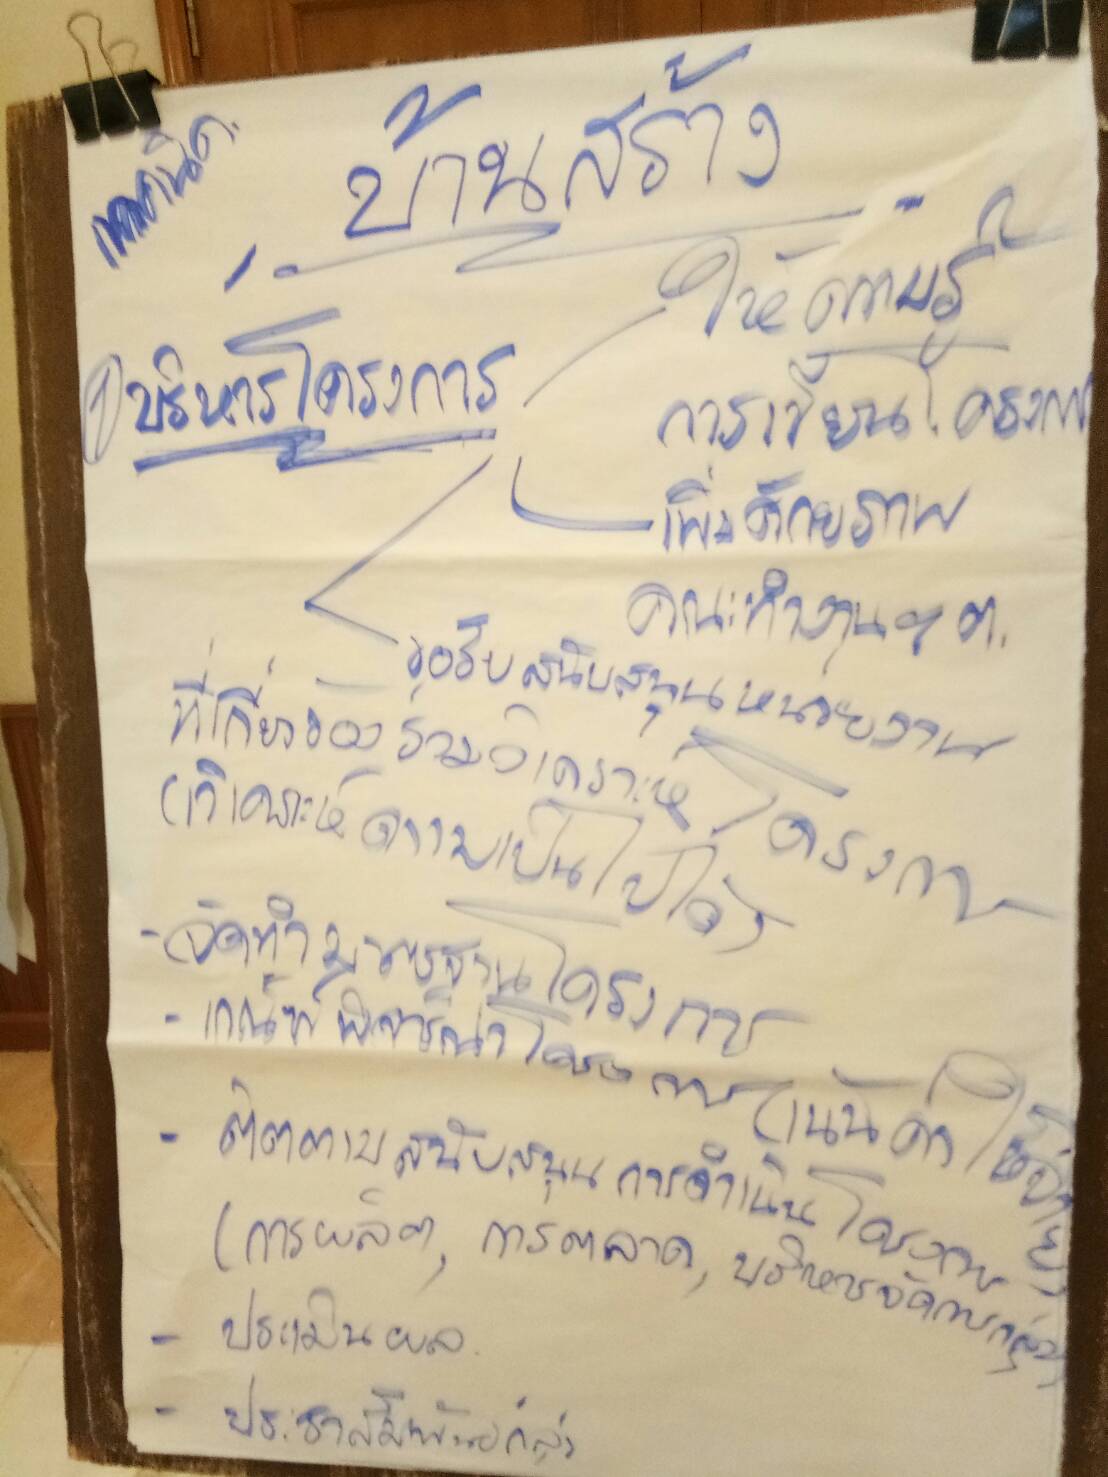 บ้านสร้าง
① บริหารโครงการ
ให้ความรู้
การเขียนโครงการ
เพิ่มศักยภาพ
คณะทำงาน ๆ ต.
ขอรับสนับสนุนหน่วยงาน
ที่เกี่ยวข้องร่วมวิเคราะห์โครงการ
(วิเคราะห์ความเป็นไปได้)
- จัดทำมาตรฐานโครงการ
- เกณฑ์พิจารณาโครงการ (เน้นค่าใช้จ่าย)
- ติดตามสนับสนุนการดำเนินโครงการ
(การผลิต, การตลาด, บริหารจัดการกลุ่ม)
- ประเมินผล
- ประชาสัมพันธ์